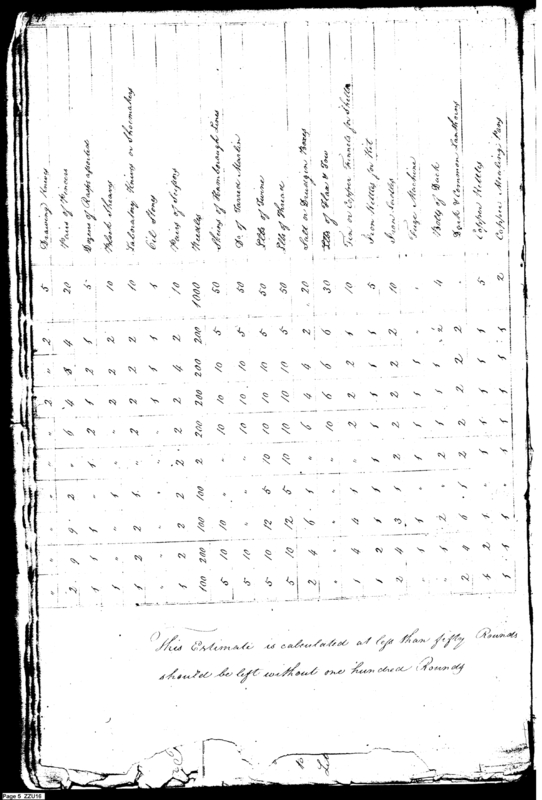 Drawing Knives 5 2 " 2 " " " " " "
Pairs of Pincers 20 4 4 6 " 2 9 9 2
Dozens of Rasps 5 1 2 1 2 1 " 1 1 1
10 2 2 2 " " 1 " " 1
Laboratory Knives or Shoemakers 10 2 2 2 2 " 1 2 2 1
Oil Stones 1 1 1 " " " 1 1 "
Pairs of Scissors 10 2 4 2 2 2 2 2 2 1
Needles 1000 200 200 200 200 2 100 100 200 100
Skeins of Hambrough Lines 50 5 10 10 10 " " 10 10 5
Do. of Tarred Marlin 50 5 10 10 10 " " " 10 5
Lbs of Twine 50 5 10 10 10 10 5 12 10 5
Lbs of Thread 50 5 10 10 10 10 5 12 10 5
Salt or Boxes 20 2 4 4 6 " 1 6 4 2
Lbs of Flax & Tow 30 6 6 6 10 " " " " "
Tin or Copper Funnels for Shells 10 1 2 2 2 1 1 4 1 1
Iron Kettles for 5 1 1 1 1 1 1 1 2 1
Iron 10 2 2 2 2 2 1 3 4 2
Fuze Machine " " 1 1 1 1 " 1 1 "
Bolts of Duck 4 2 1 1 2 2 " 2 " "
Dark & Common Lanthorns " 2 2 2 2 2 1 6 4 2
Copper Kettles 5 1 1 1 1 1 1 1 2
Copper Mealing 2 1 1 1 1 1 1 1 1 1
This Estimate is calculated at less than fifty Rounds
should be left without one hundred Rounds
to
Page 5 ZZU16